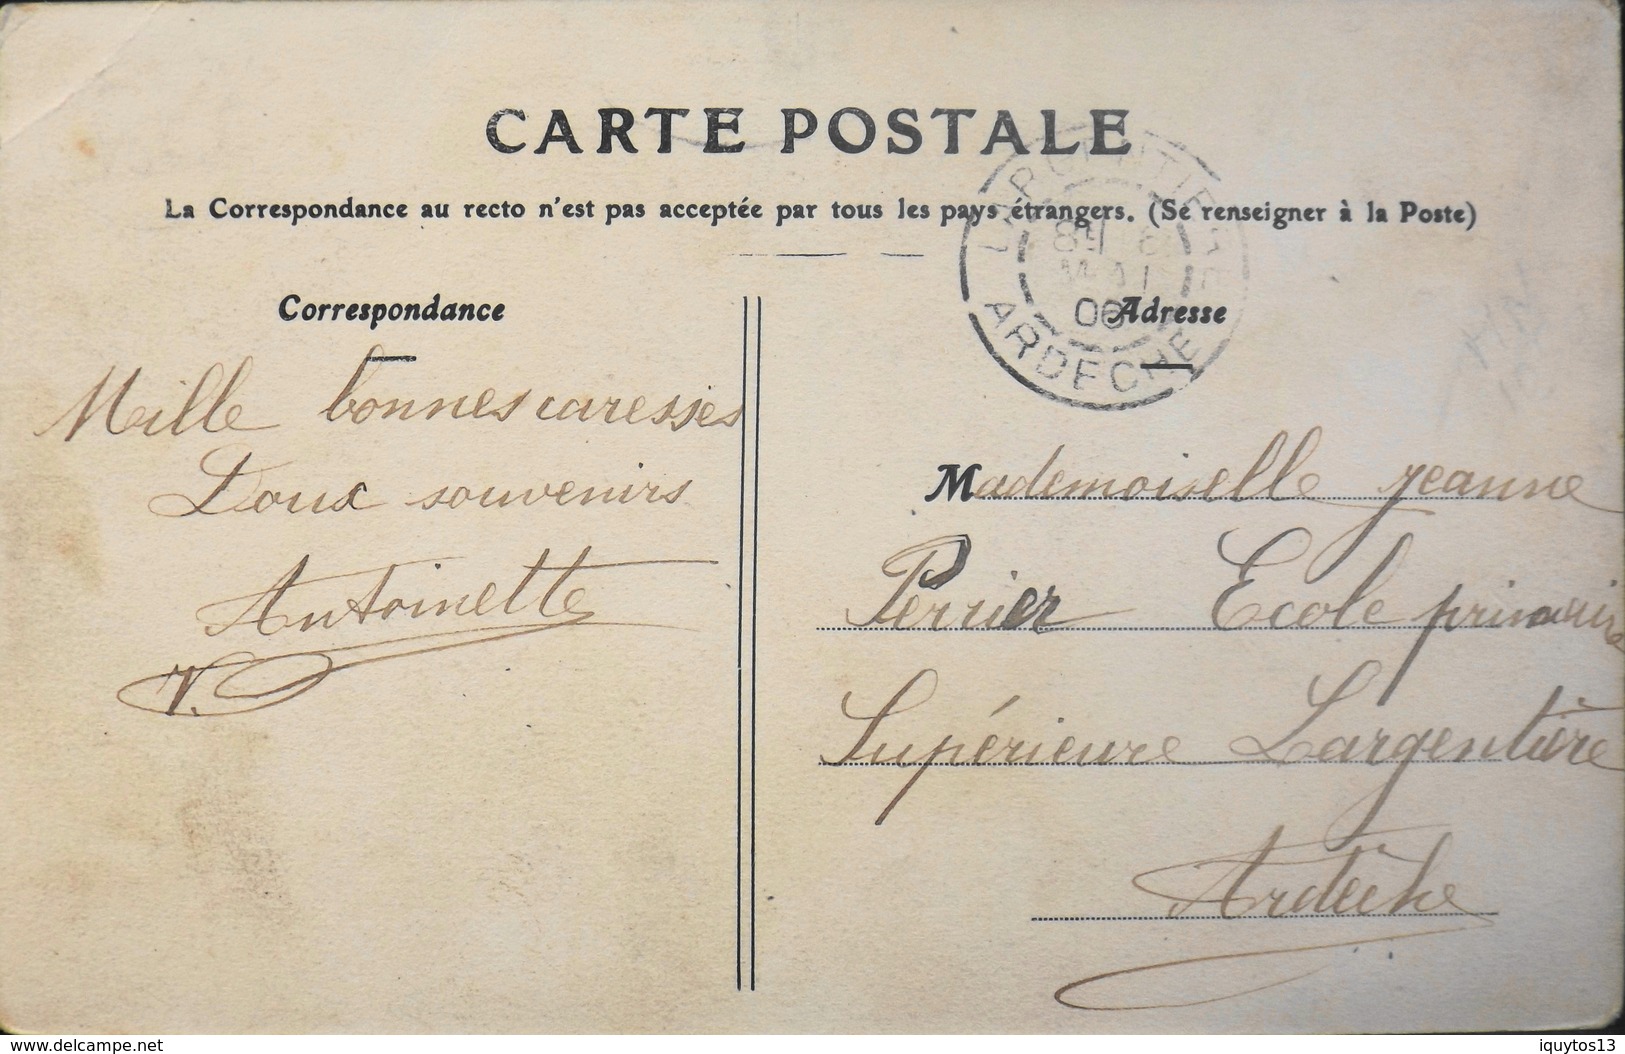 CARTE POSTALE
La Correspondance au recto n'est pas acceptée par tous les pays étrangers. (Se renseigner à la Poste)
Correspondance
Mille bonnes caresses
Doux souvenirs
Antoinette
V.
LARGENTIERE
MAI
06
ARDECHE
Adresse
Mademoiselle Jeanne
Perrier Ecole primaire
Supérieure Largentière
Ardèche
www.delcampe.net
iquytos13